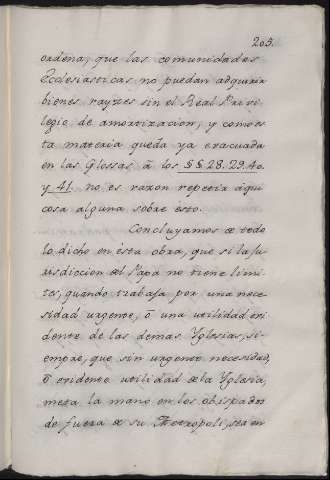 205.
ordena, que las comunidades
Ecclesiasticas no puedan adquirir
bienes rayzes sin el Real Privi
legio de amortizacion, y como es
ta materia queda ya evacuada
en las Glossas â los §§ 28. 29. 40.
y 41. no es razon repetir aqui
cosa alguna sobre esto.
Concluyamos de todo
lo dicho en esta obra, que si la Ju
risdiccion del Papa no tiene limi-
tes, quando trabaja por una nece-
sidad urgente, ô una utilidad evi-
dente de las demas Yglesias, si-
empre, que sin urgente necesidad,
ô evidente utilidad de la Yglesia,
meta la mano en los obispados
de fuera de su Metropoli, sea en